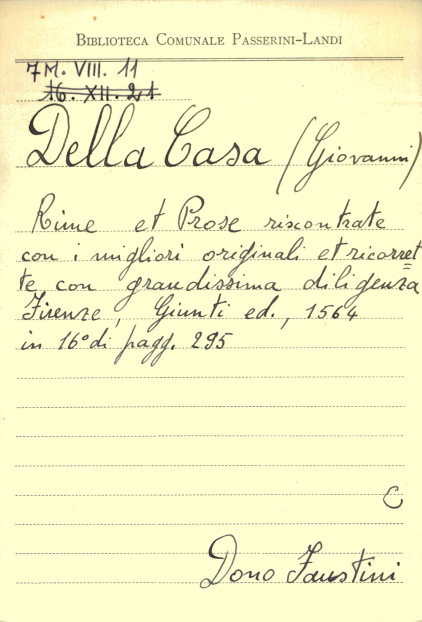 BIBLIOTECA COMUNALE PASSERINI-LANDI
7M. VIII. 11
16. XII. 21
Della Casa (Giovanni)
Rime et Prose riscontrate
con i migliori originali et ricorret=
te con grandissima diligenza
Firenze, Giunti ed., 1564
in 16° di pagg. 295
C
Dono Faustini